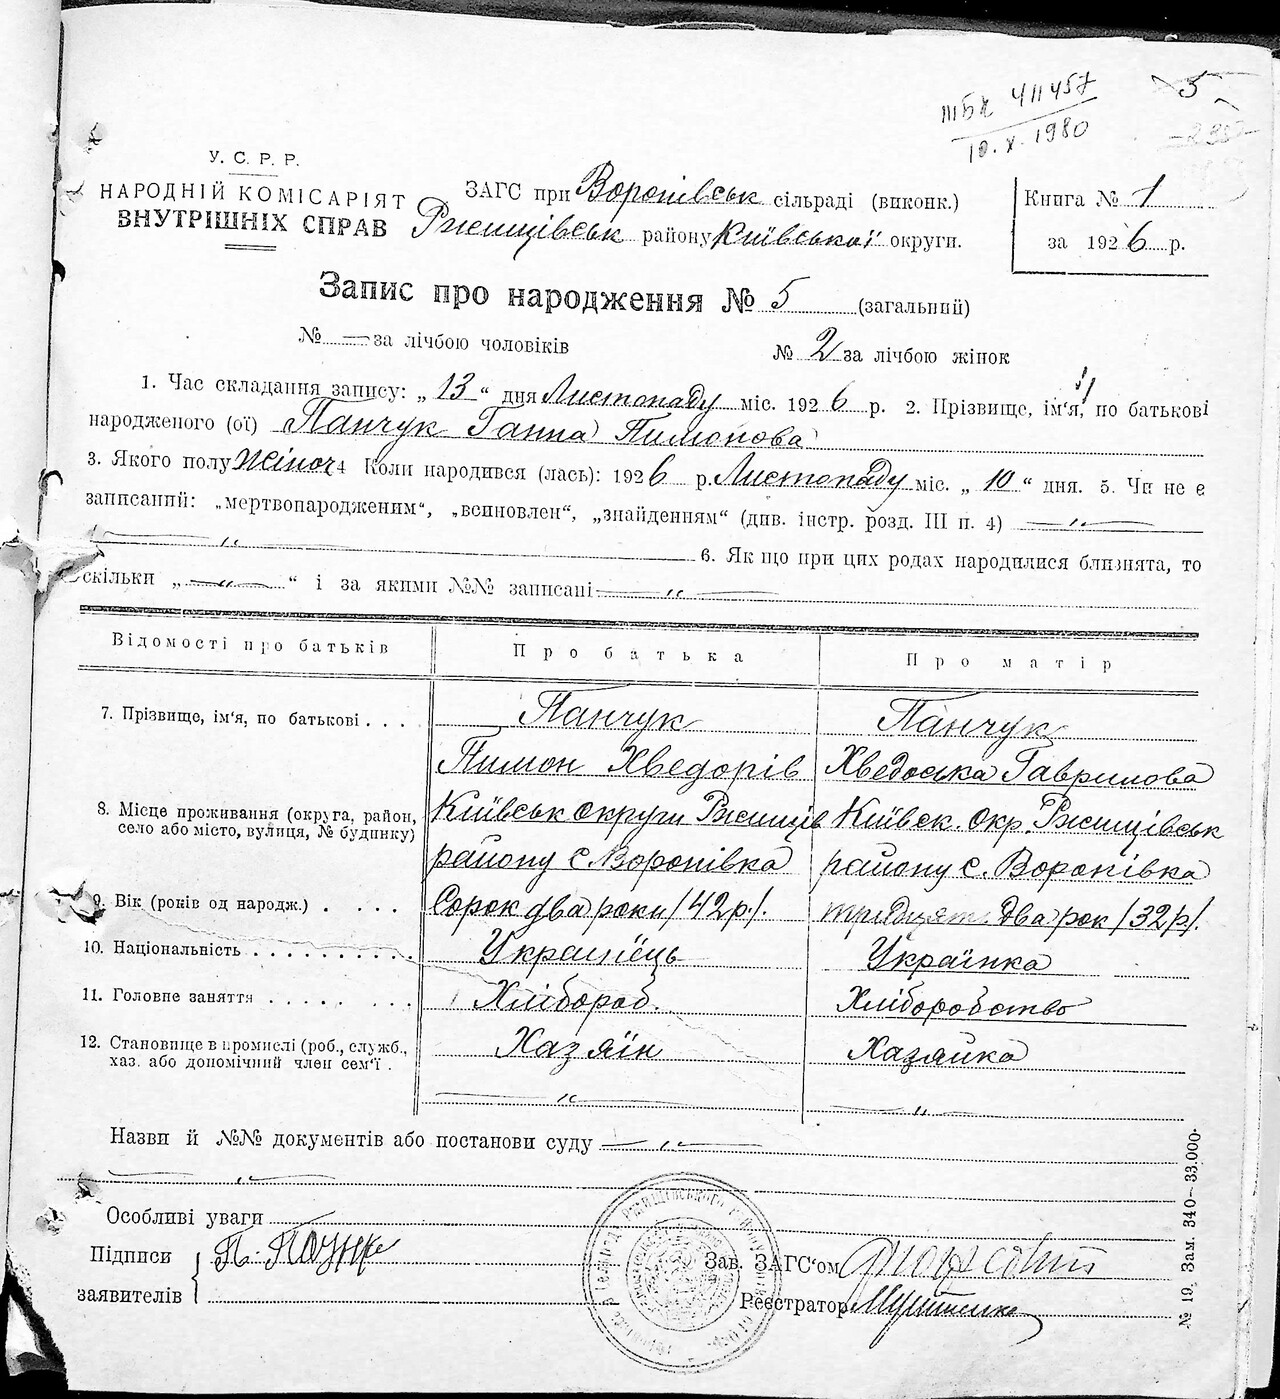 5
ІІІБК 411457
10.X.1980
У. С. Р. Р.
НАРОДНІЙ КОМІСАРІЯТ
ВНУТРІШНІХ СПРАВ
ЗАГС при Воропівськ сільраді (виконк.)
Ржищівськ району Київської округи.
Книга № 1
за 1926 р.
Запис про народження № 5 (загальний)
№ — за лічбою чоловіків № 2 за лічбою жінок
1. Час складання запису: „ 13 “ дня Листопаду міс. 1926 р. 2. Прізвище, ім'я, по батькові
народженого (ої) Панчук Ганна Пимонова
3. Якого полу жіноч 4 Коли народився (лась): 1926 р. Листопаду міс. „ 10 “ дня. 5. Чи не є
записаний: „мертвонародженим“, „всиновлен“, „знайденням“ (див. інстр. розд. III п. 4) — „ —
— „ — 6. Як що при цих родах народилися близнята, то
скільки „ — „ — “ і за якими №№ записані — „ —
Відомості про батьків Про батька Про матір
7. Прізвище, ім'я, по батькові . . . Панчук Панчук
Пимон Хведорів Хведоська Гаврилова
8. Місце проживання (округа, район, село або місто, вулиця, № будинку) Київськ округи Ржищів Київськ. Окр. Ржищівськ
району с. Воропівка району с. Воропівка
9. Вік (років од народж.) . . . . Сорок два роки /42 р/. тридцят два рок /32 р/.
10. Національність . . . . . . . . . . Українець Українка
11. Головне заняття . . . . . . . . Хлібороб. Хліборобство
12. Становище в промислі (роб., служб., хаз. або допомічний член сем'ї . Хазяїн Хазяйка
— „ — — „ —
Назви й №№ документів або постанови суду — „ —
— „ —
Особливі уваги
Підписи
заявителів
Зав. ЗАГС'ом
Реєстратор
№ 19. Зам. 340—33.000.